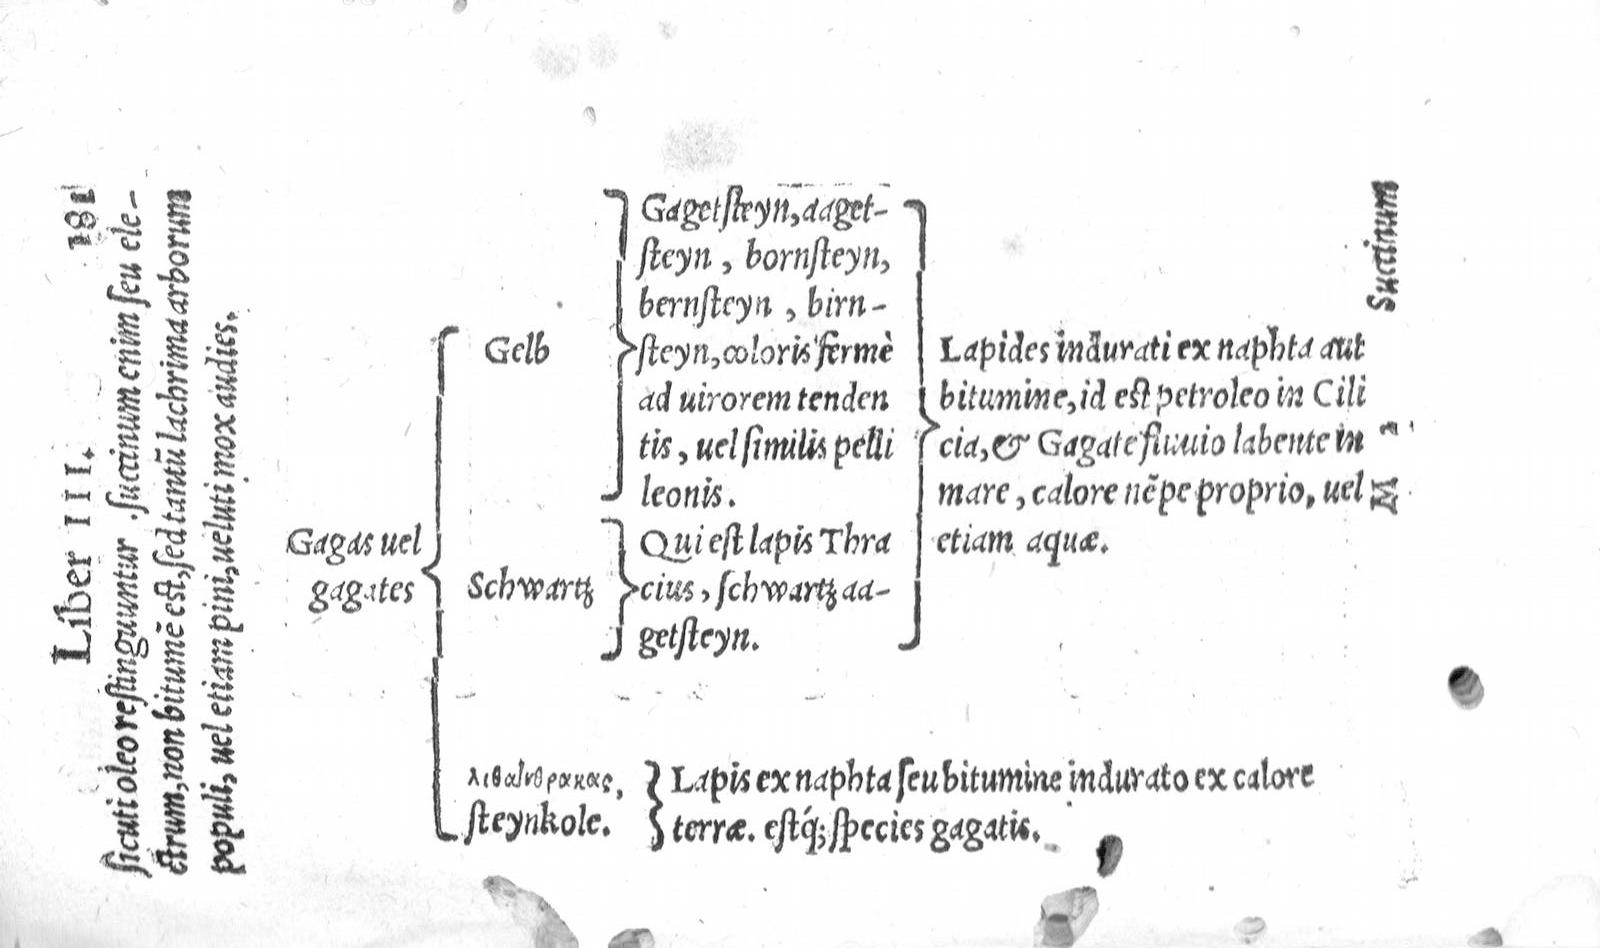 Liber III. 181
ſicuti oleo reſtinguuntur. ſuccinum enim ſeu ele-
ctrum, non bitumē eſt, ſed tantū lachrima arborum
populi, uel etiam pini, ueluti mox audies.
Gagas uel
gagates
Gelb
Gagetſteyn, aaget-
ſteyn, bornſteyn,
bernſteyn, birn-
ſteyn, coloris fermè
ad uirorem tenden
tis, uel ſimilis pelli
leonis.
Schwartz
Qui eſt lapis Thra
cius, ſchwartz aa-
getſteyn.
Lapides indurati ex naphta aut
bitumine, id eſt petroleo in Cili
cia, & Gagate fluuio labente in
mare, calore nēpe proprio, uel
etiam aquæ.
λιθάνθρακας,
ſteynkole.
Lapis ex naphta ſeu bitumine indurato ex calore
terræ. eſtq́; ſpecies gagatis.
M a Succinum